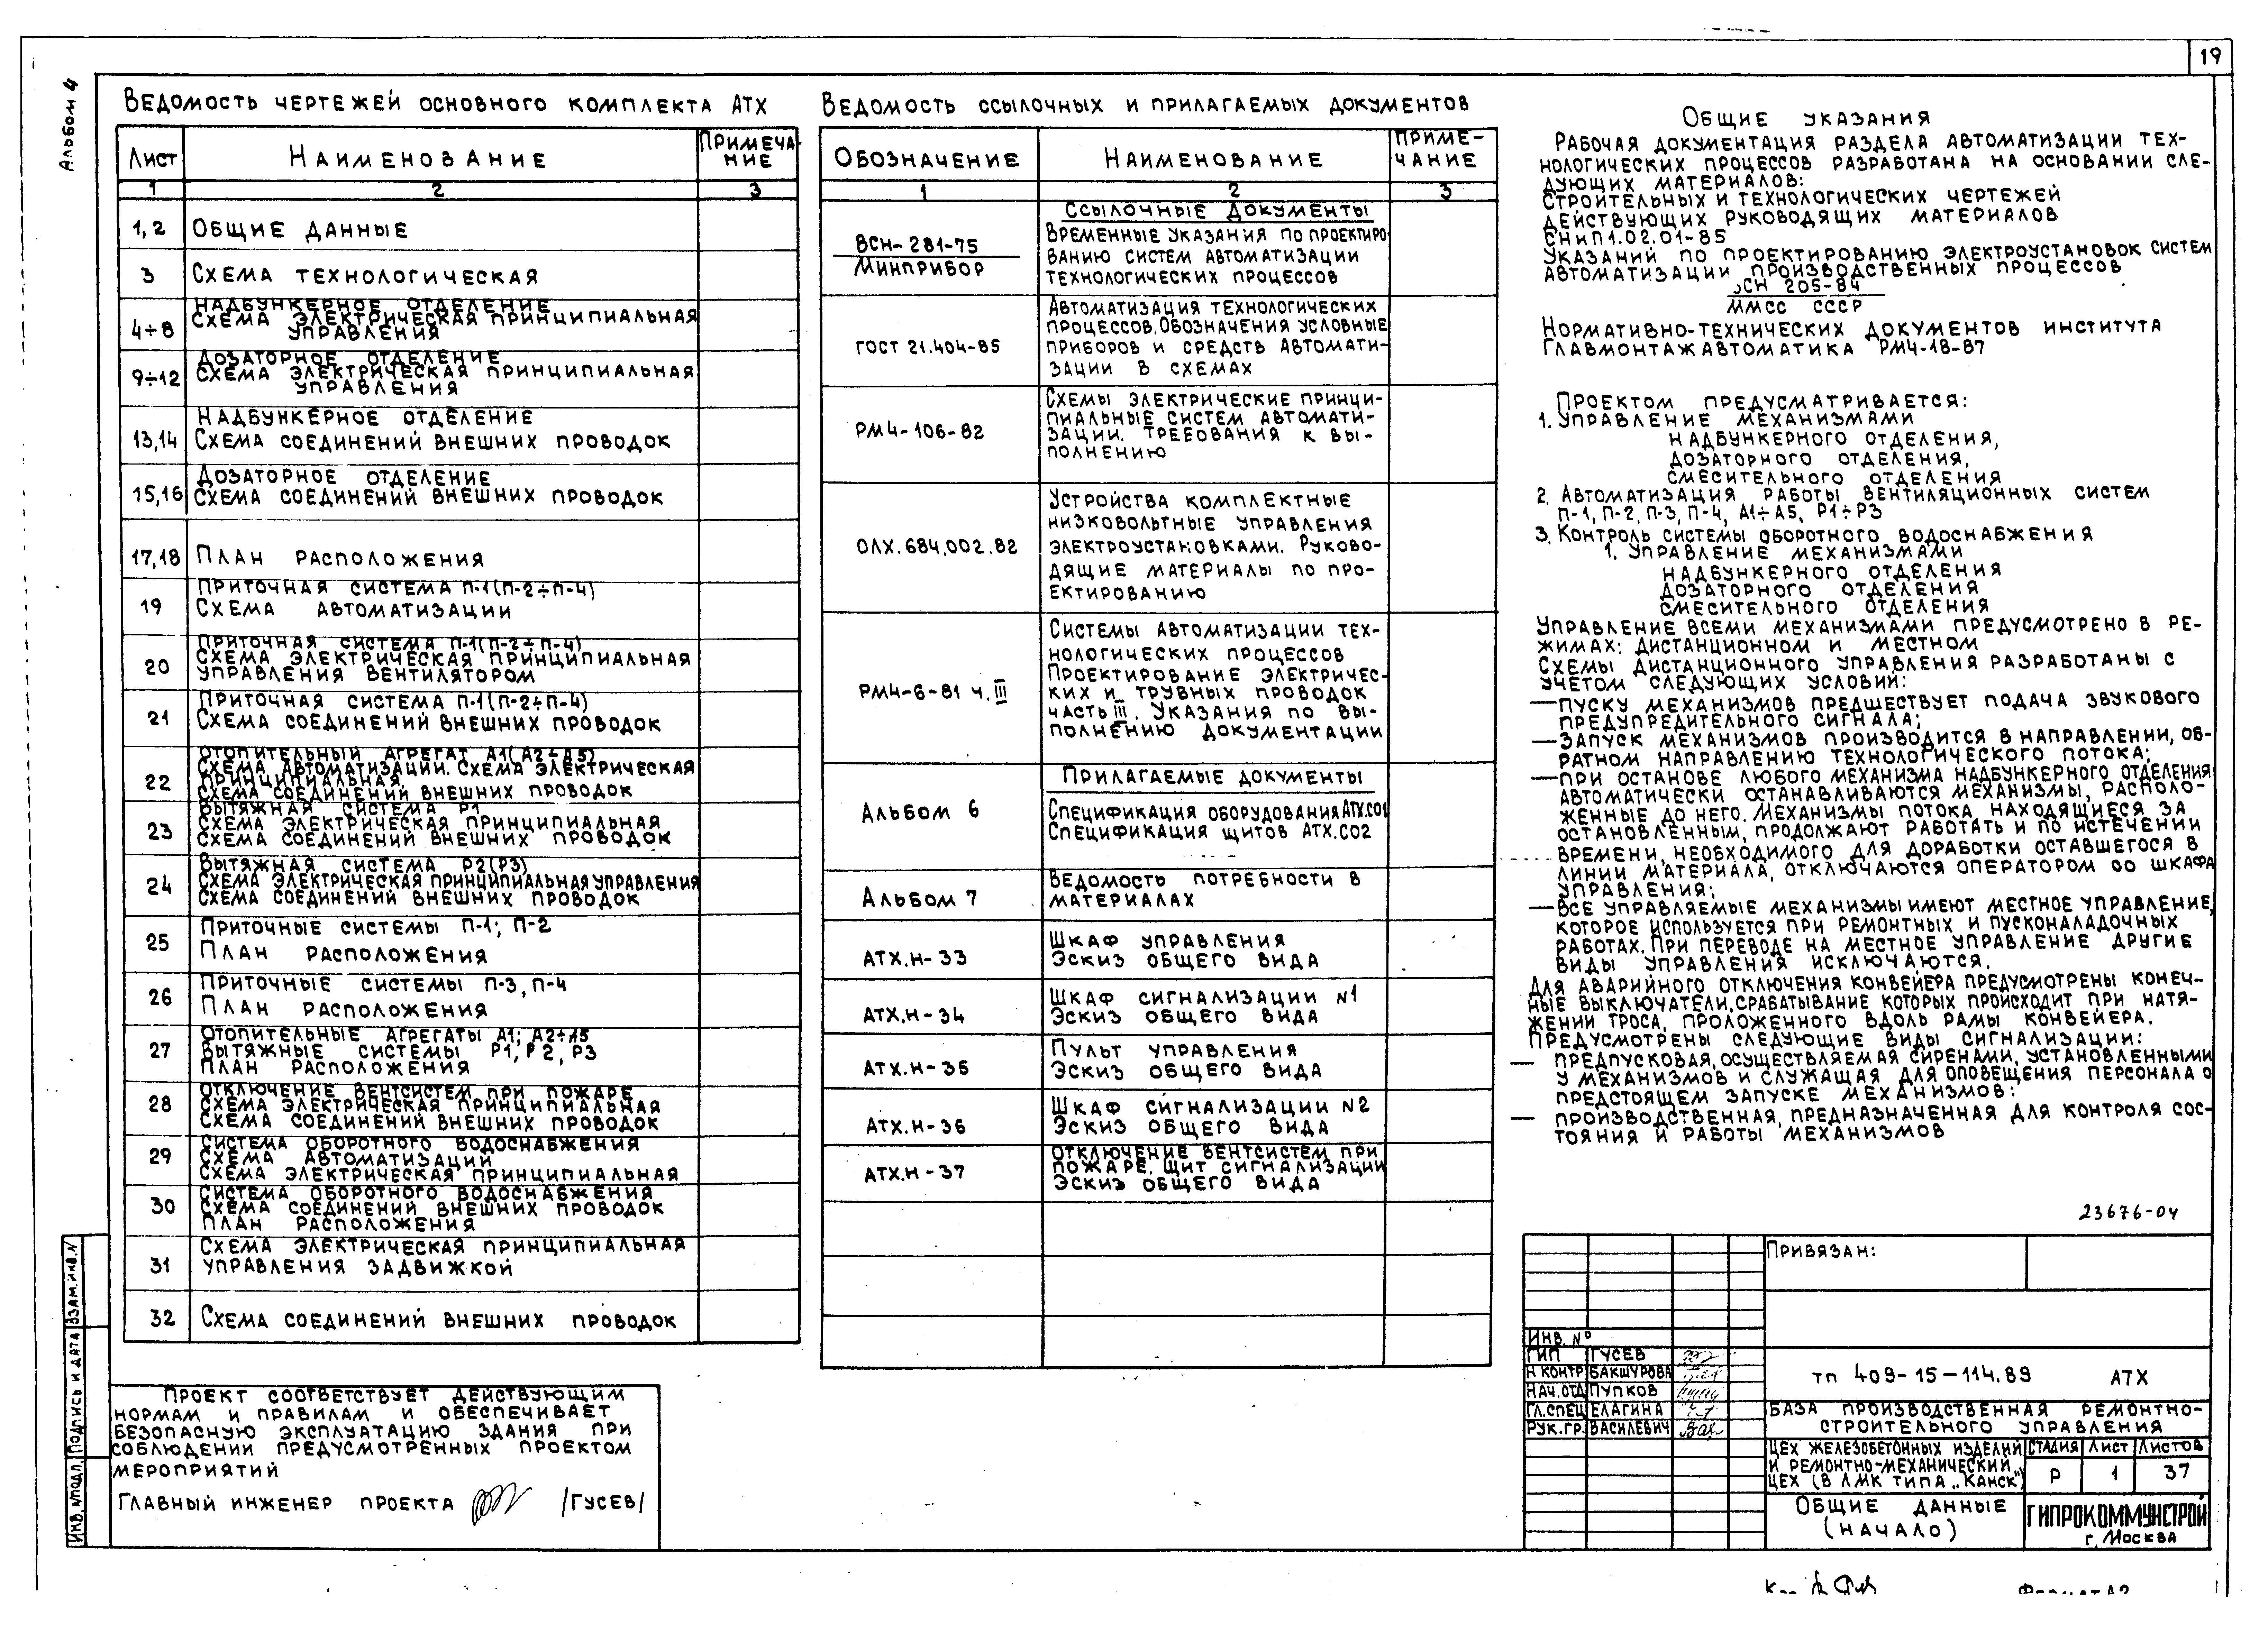 19
Альбом 4
Ведомость чертежей основного комплекта АТХ
Лист Наименование Примеча-
ние
1 2 3
1,2 Общие данные
3 Схема технологическая
Надбункерное отделение
4÷8 Схема электрическая принципиальная
управления
Дозаторное отделение
9÷12 Схема электрическая принципиальная
управления
Надбункерное отделение
13,14 Схема соединений внешних проводок
Дозаторное отделение
15,16 Схема соединений внешних проводок
17,18 План расположения
Приточная система П-1(П-2÷П-4)
19 Схема автоматизации
Приточная система П-1(П-2÷П-4)
20 Схема электрическая принципиальная
управления вентилятором
Приточная система П-1(П-2÷П-4)
21 Схема соединений внешних проводок
Отопительный агрегат А1(А2÷А5)
Схема автоматизации. Схема электрическая
22 принципиальная
Схема соединений внешних проводок
Вытяжная система Р1
23 Схема электрическая принципиальная
Схема соединений внешних проводок
Вытяжная система Р2(Р3)
24 Схема электрическая принципиальная управления
Схема соединений внешних проводок
Приточные системы П-1; П-2
25 План расположения
Приточные системы П-3, П-4
26 План расположения
Отопительные агрегаты А1; А2÷А5
27 Вытяжные системы Р1, Р2, Р3
План расположения
Отключение вентсистем при пожаре
28 Схема электрическая принципиальная
Схема соединений внешних проводок
Система оборотного водоснабжения
29 Схема автоматизации
Схема электрическая принципиальная
Система оборотного водоснабжения
30 Схема соединений внешних проводок
План расположения
Схема электрическая принципиальная
31 управления задвижкой
32 Схема соединений внешних проводок
Проект соответствует действующим
нормам и правилам и обеспечивает
безопасную эксплуатацию здания при
соблюдении предусмотренных проектом
мероприятий
Главный инженер проекта /Гусев/
Ведомость ссылочных и прилагаемых документов
Обозначение Наименование Приме-
чание
1 2 3
Ссылочные документы
ВСН-281-75 Временные указания по проектиро
Минприбор ванию систем автоматизации
технологических процессов
Автоматизация технологических
процессов. Обозначения условные
ГОСТ 21.404-85 приборов и средств автомати-
зации в схемах
Схемы электрические принци-
пиальные систем автомати-
РМ4-106-82 зации. Требования к вы-
полнению
Устройства комплектные
низковольтные управления
ОЛХ.684.002.82 электроустановками. Руково-
дящие материалы по про-
ектированию
Системы автоматизации тех-
нологических процессов
Проектирование электричес-
РМ4-6-81 ч. III ких и трубных проводок
часть III. Указания по вы-
полнению документации
Прилагаемые документы
Альбом 6 Спецификация оборудования АТХ.СО1
Спецификация щитов АТХ.СО2
Ведомость потребности в
Альбом 7 материалах
Шкаф управления
АТХ.Н-33 Эскиз общего вида
Шкаф сигнализации N1
АТХ.Н-34 Эскиз общего вида
Пульт управления
АТХ.Н-35 Эскиз общего вида
Шкаф сигнализации N2
АТХ.Н-36 Эскиз общего вида
Отключение вентсистем при
АТХ.Н-37 пожаре. Щит сигнализации
Эскиз общего вида
Общие указания
Рабочая документация раздела автоматизации тех-
нологических процессов разработана на основании сле-
дующих материалов:
строительных и технологических чертежей
действующих руководящих материалов
СНиП1.02.01-85
Указаний по проектированию электроустановок систем
автоматизации производственных процессов
ВСН 205-84
ММСС СССР
Нормативно-технических документов института
Главмонтажавтоматика РМ4-18-87
Проектом предусматривается:
1. Управление механизмами
надбункерного отделения,
дозаторного отделения,
смесительного отделения
2. Автоматизация работы вентиляционных систем
П-1, П-2, П-3, П-4, А1÷А5, Р1÷Р3
3. Контроль системы оборотного водоснабжения
1. Управление механизмами
надбункерного отделения
дозаторного отделения
смесительного отделения
Управление всеми механизмами предусмотрено в ре-
жимах: дистанционном и местном
Схемы дистанционного управления разработаны с
учетом следующих условий:
— пуску механизмов предшествует подача звукового
предупредительного сигнала;
— запуск механизмов производится в направлении, об-
ратном направлению технологического потока;
— при останове любого механизма надбункерного отделения
автоматически останавливаются механизмы, располо-
женные до него. Механизмы потока, находящиеся за
остановленным, продолжают работать и по истечении
времени, необходимого для доработки оставшегося в
линии материала, отключаются оператором со шкафа
управления;
— все управляемые механизмы имеют местное управление,
которое используется при ремонтных и пусконаладочных
работах. При переводе на местное управление другие
виды управления исключаются.
Для аварийного отключения конвейера предусмотрены конеч-
ные выключатели, срабатывание которых происходит при натя-
жении троса, проложенного вдоль рамы конвейера.
Предусмотрены следующие виды сигнализации:
— предпусковая, осуществляемая сиренами, установленными
у механизмов и служащая для оповещения персонала о
предстоящем запуске механизмов:
— производственная, предназначенная для контроля сос-
тояния и работы механизмов
23676-04
Привязан:
Инв. №
ГИП Гусев
Н контр Бакшурова
Нач. отд Пупков
Гл. спец Елагина
Рук. гр. Василевич
тп 409-15-114.89 АТХ
База производственная ремонтно-
строительного управления
Цех железобетонных изделий
и ремонтно-механический
цех (в ЛМК типа „Канск")
Стадия Лист Листов
Р 1 37
Общие данные
(начало)
ГИПРОКОММУНСТРОЙ
г. Москва
Инв. N подл. Подпись и дата Взам. инв. N
Формат А2